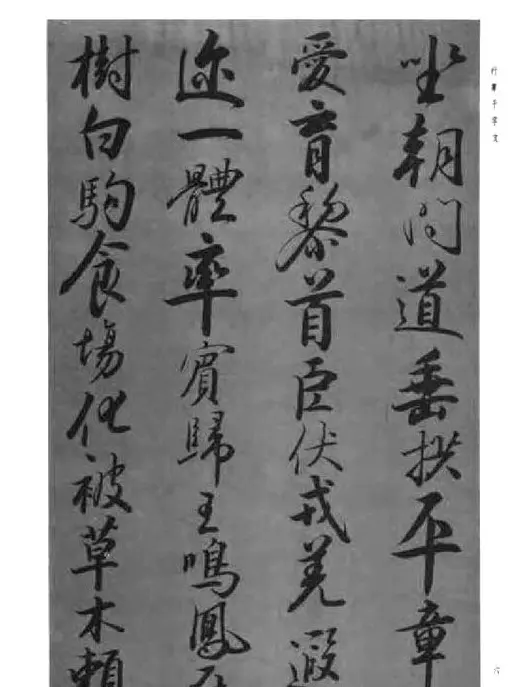 行書千字文
坐朝問道垂拱平章
愛育黎首臣伏戎羌遐
迩一體率賓歸王鳴鳳在
樹白駒食場化被草木賴
六